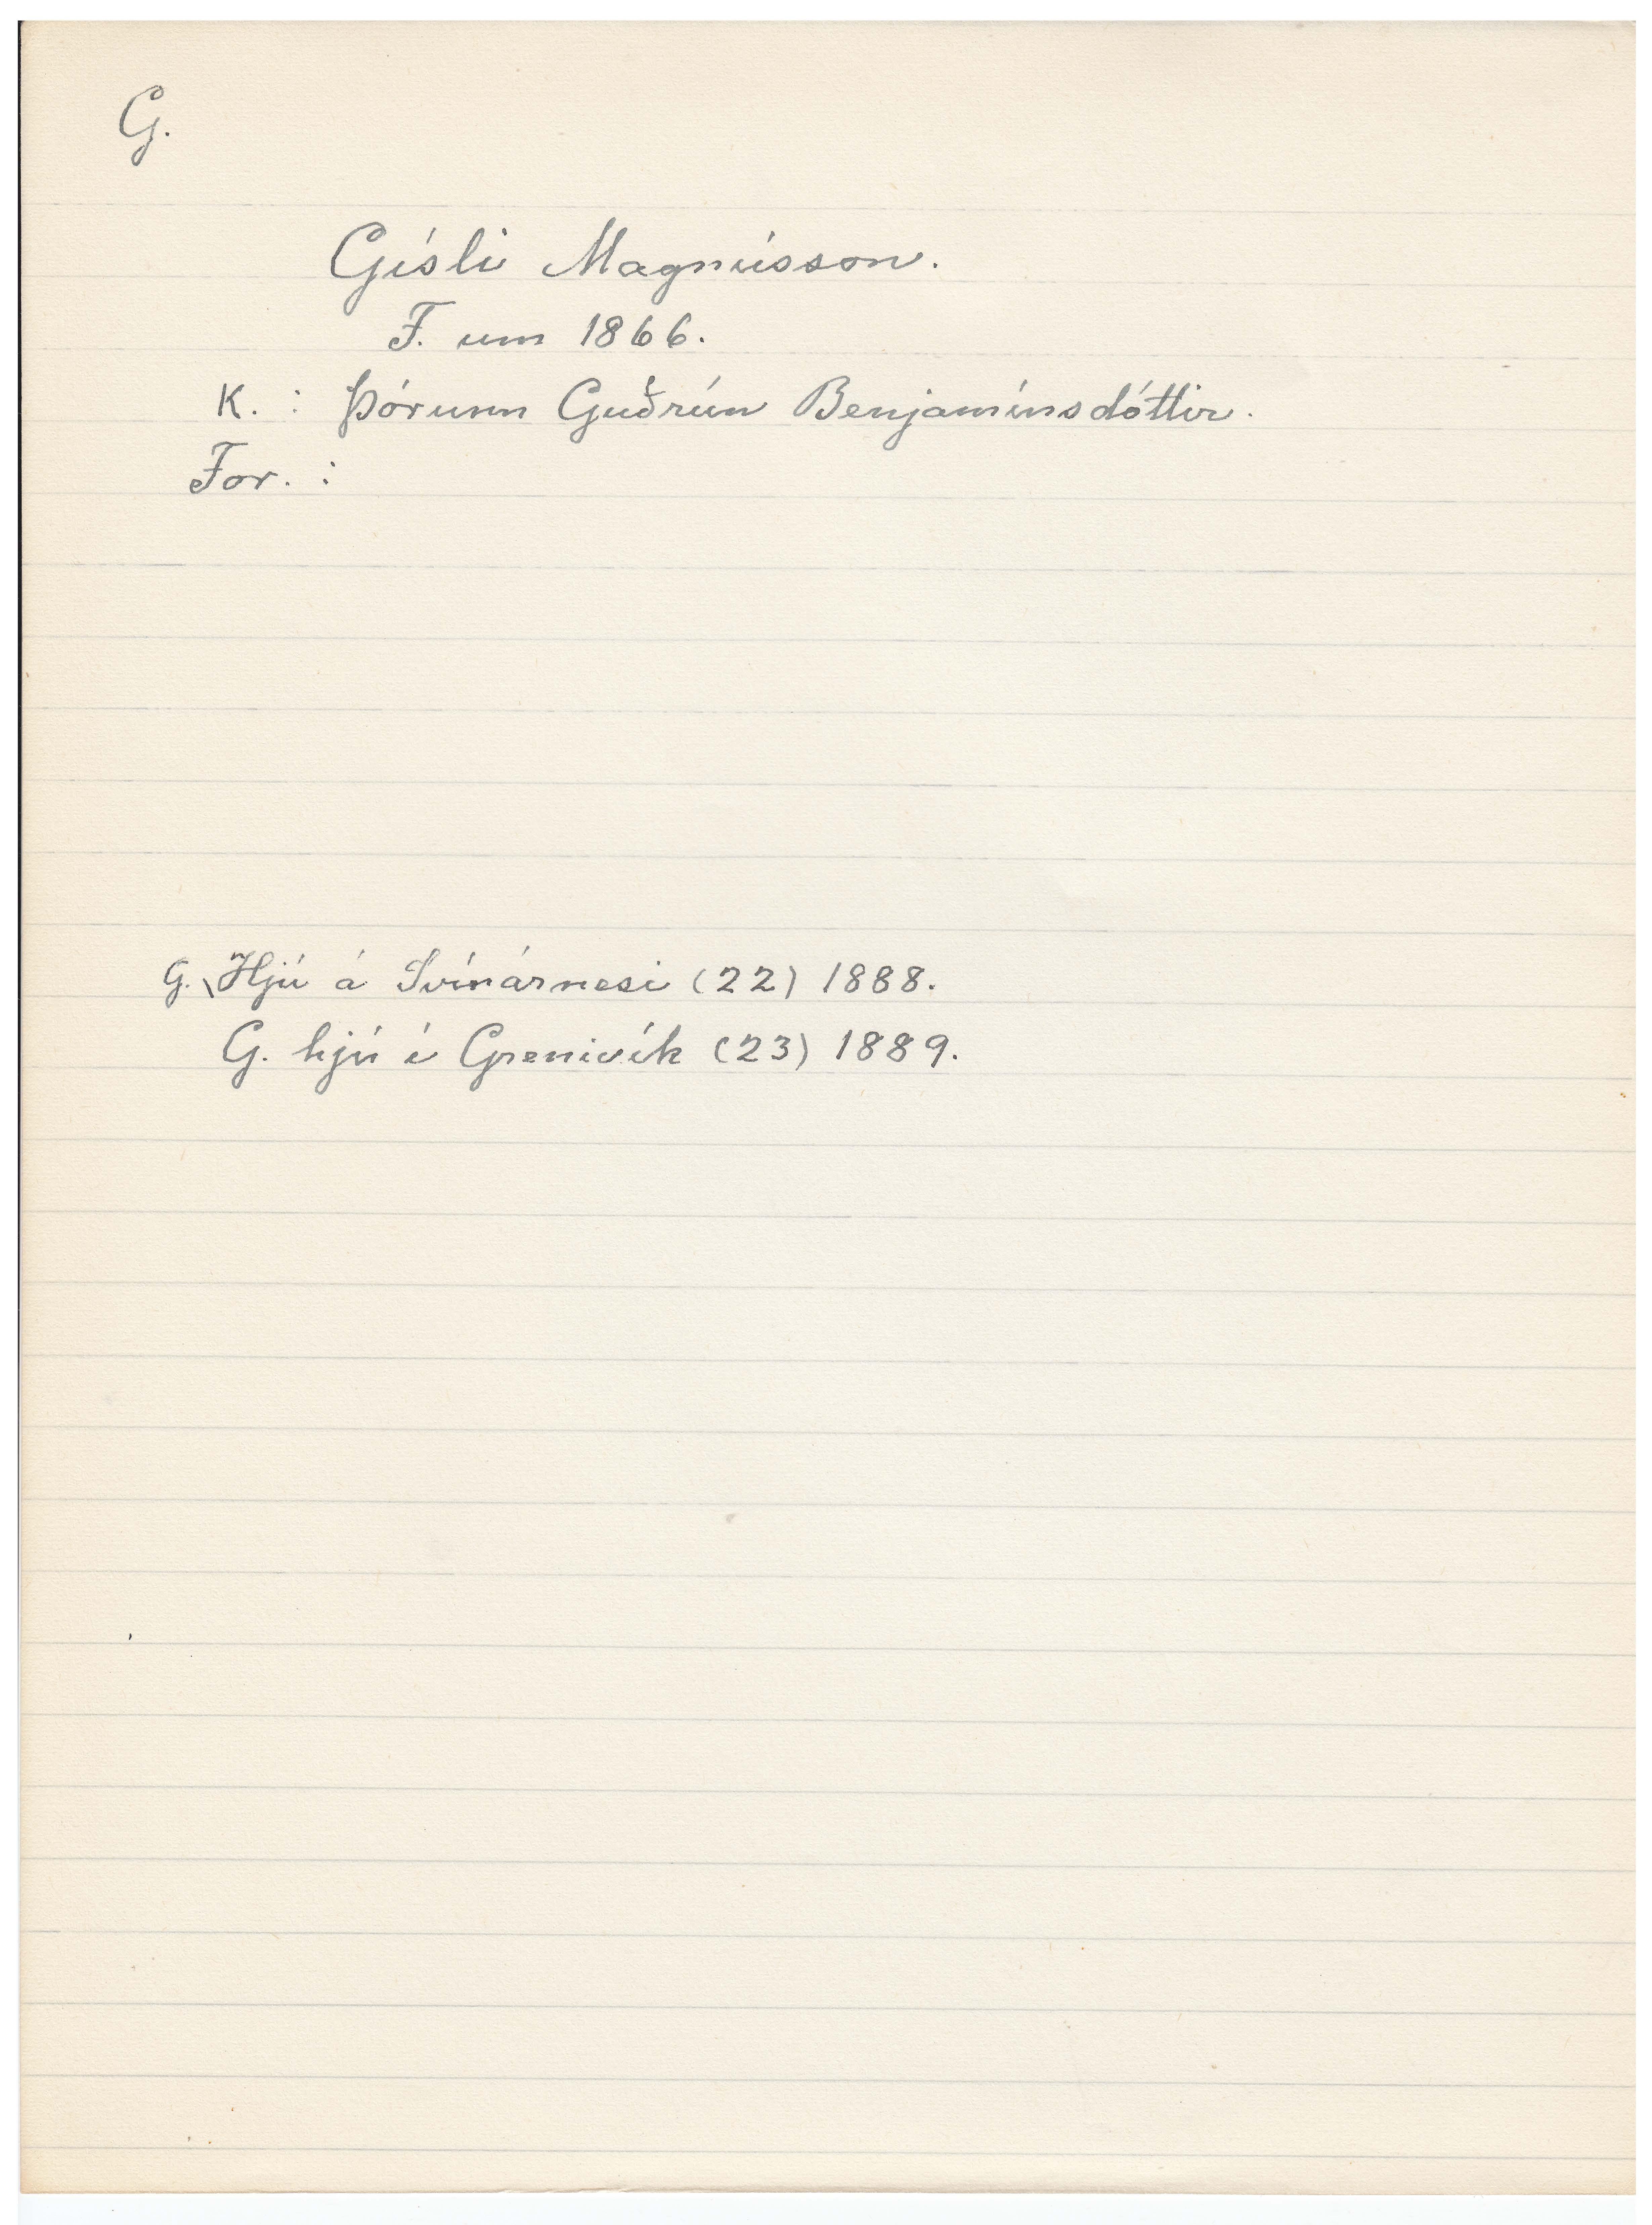 G.
Gísli Magnússon.
F. um 1866.
K. : Þórunn Guðrún Benjamínsdóttir.
For. :
G. Hjú á Svínárnesi (22) 1888.
G. hjú í Grenivík (23) 1889.